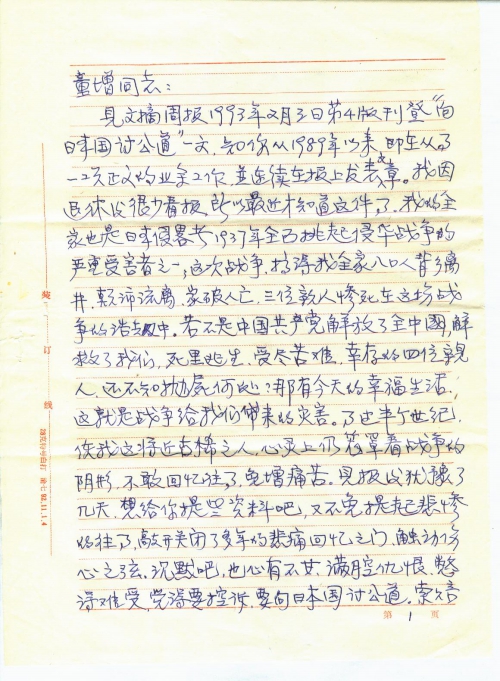 童增同志：
见文摘周报1993年2月3日第4版刊登"向
日本国讨公道"一文，知你从1989年以来，即在从事
一项正义的业余工作，并连续在报上发表文章。我因
退休后很少看报，所以最近才知道这件事。我的全
家也是日本侵略者1937年全面挑起侵华战争的
严重受害者之一，这次战争，搞得我全家八口人背乡离
井，颠沛流离，家破人亡，三位亲人惨死在这场战
争的浩劫中。若不是中国共产党解放了全中國，解
救了我们，死里逃生、受尽苦难，幸存的四位亲
人，还不知抛屍何处？那有今天的幸福生活，
这就是战争给我们带来的灾害。事过半个世纪，
使我这将近古稀之人，心灵上仍笼罩着战争的
阴影，不敢回忆往事，免增痛苦。见报后犹豫了
几天，想给你提些资料吧，又不免提起悲惨
的往事，敲开关闭了多年的悲痛回忆之门，触动伤
心之弦。沉默吧，也心有不甘，满腔仇恨，憋
得难受，觉得要控诉，要向日本国讨公道。索
第 1 页
装
订
线